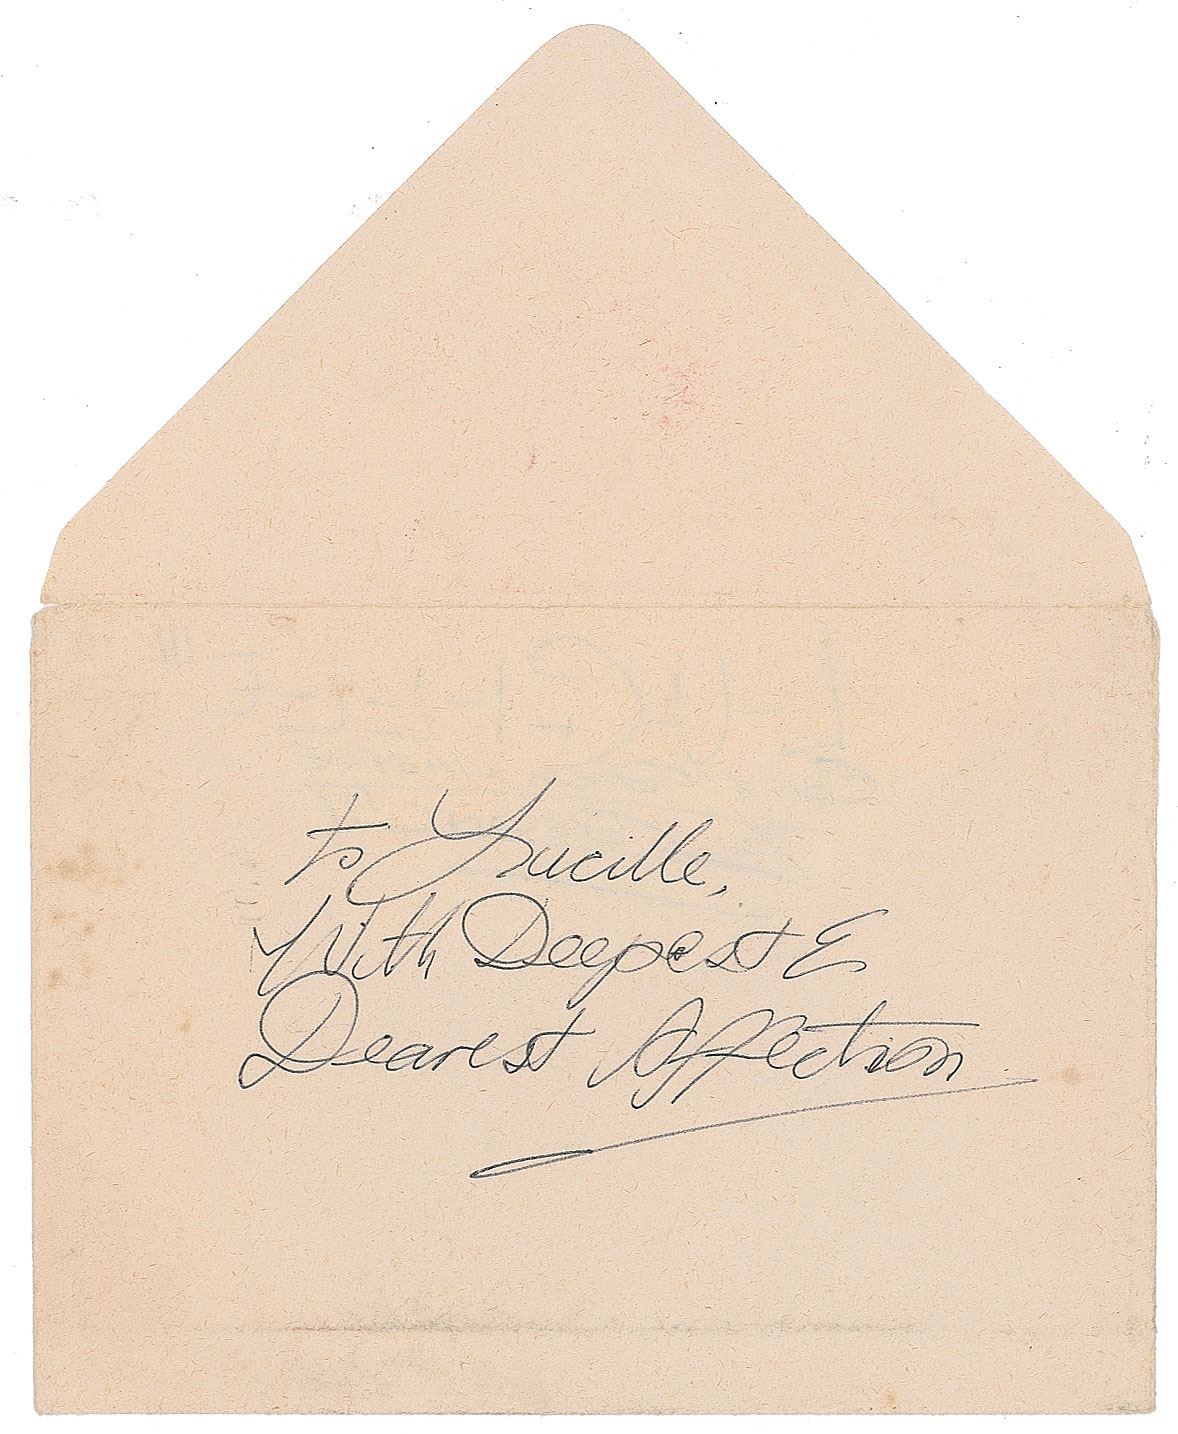 to Lucille,
With Deepest &
Dearest Affection